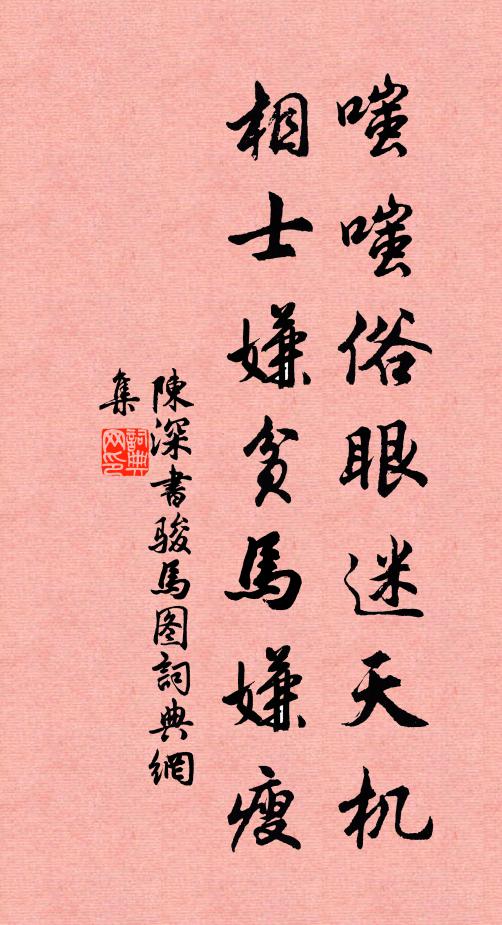 嗤嗤俗眼迷天机
相士嫌贫馬嫌瘦
陳深書骏馬图詞典網
集
詞典网印